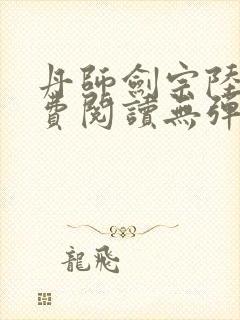 丹師劍宗陸
費閱讀無彈
龍飛